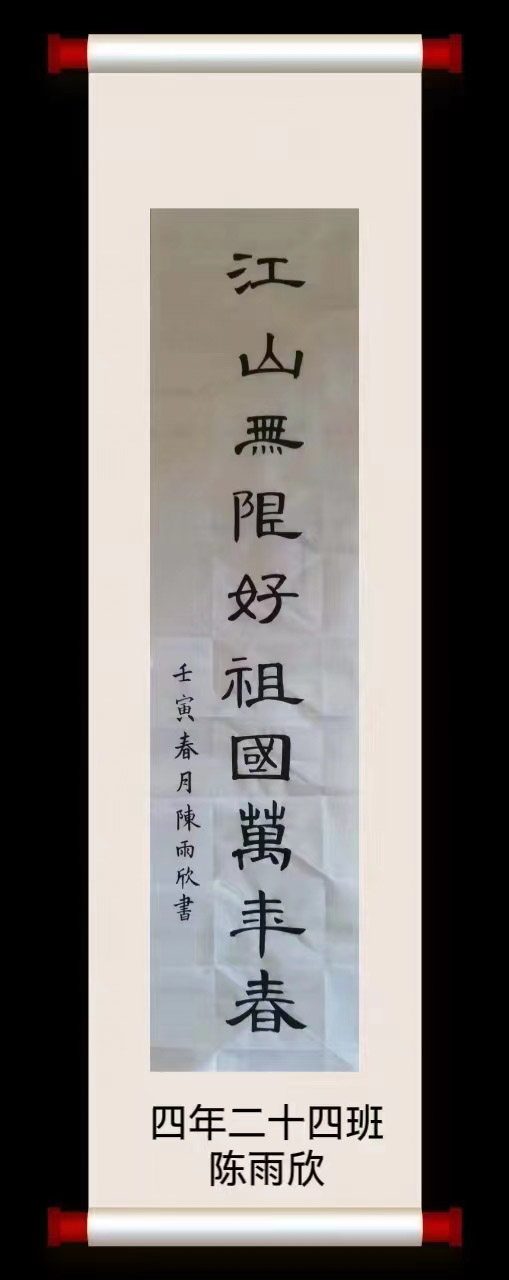 江山無限好祖國萬年春
壬寅春月陳雨欣書
四年二十四班
陈雨欣